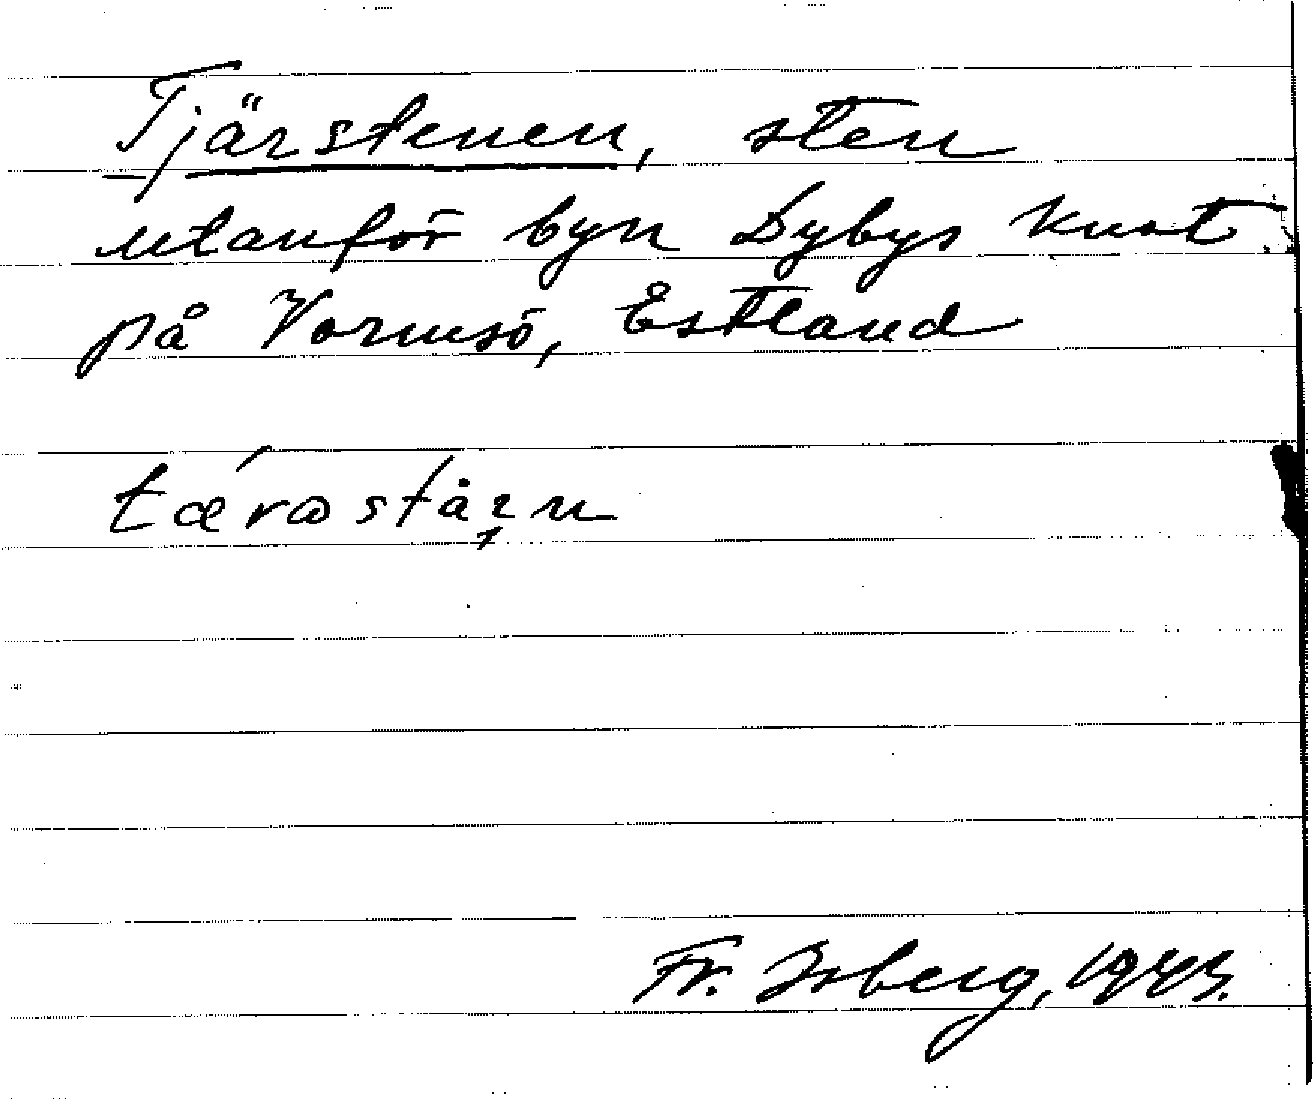 Tjärstenen, sten
utanför byn Dybys kust
på Vormsö, Estland
tǽrastäın
Fr. Isberg, 1943.